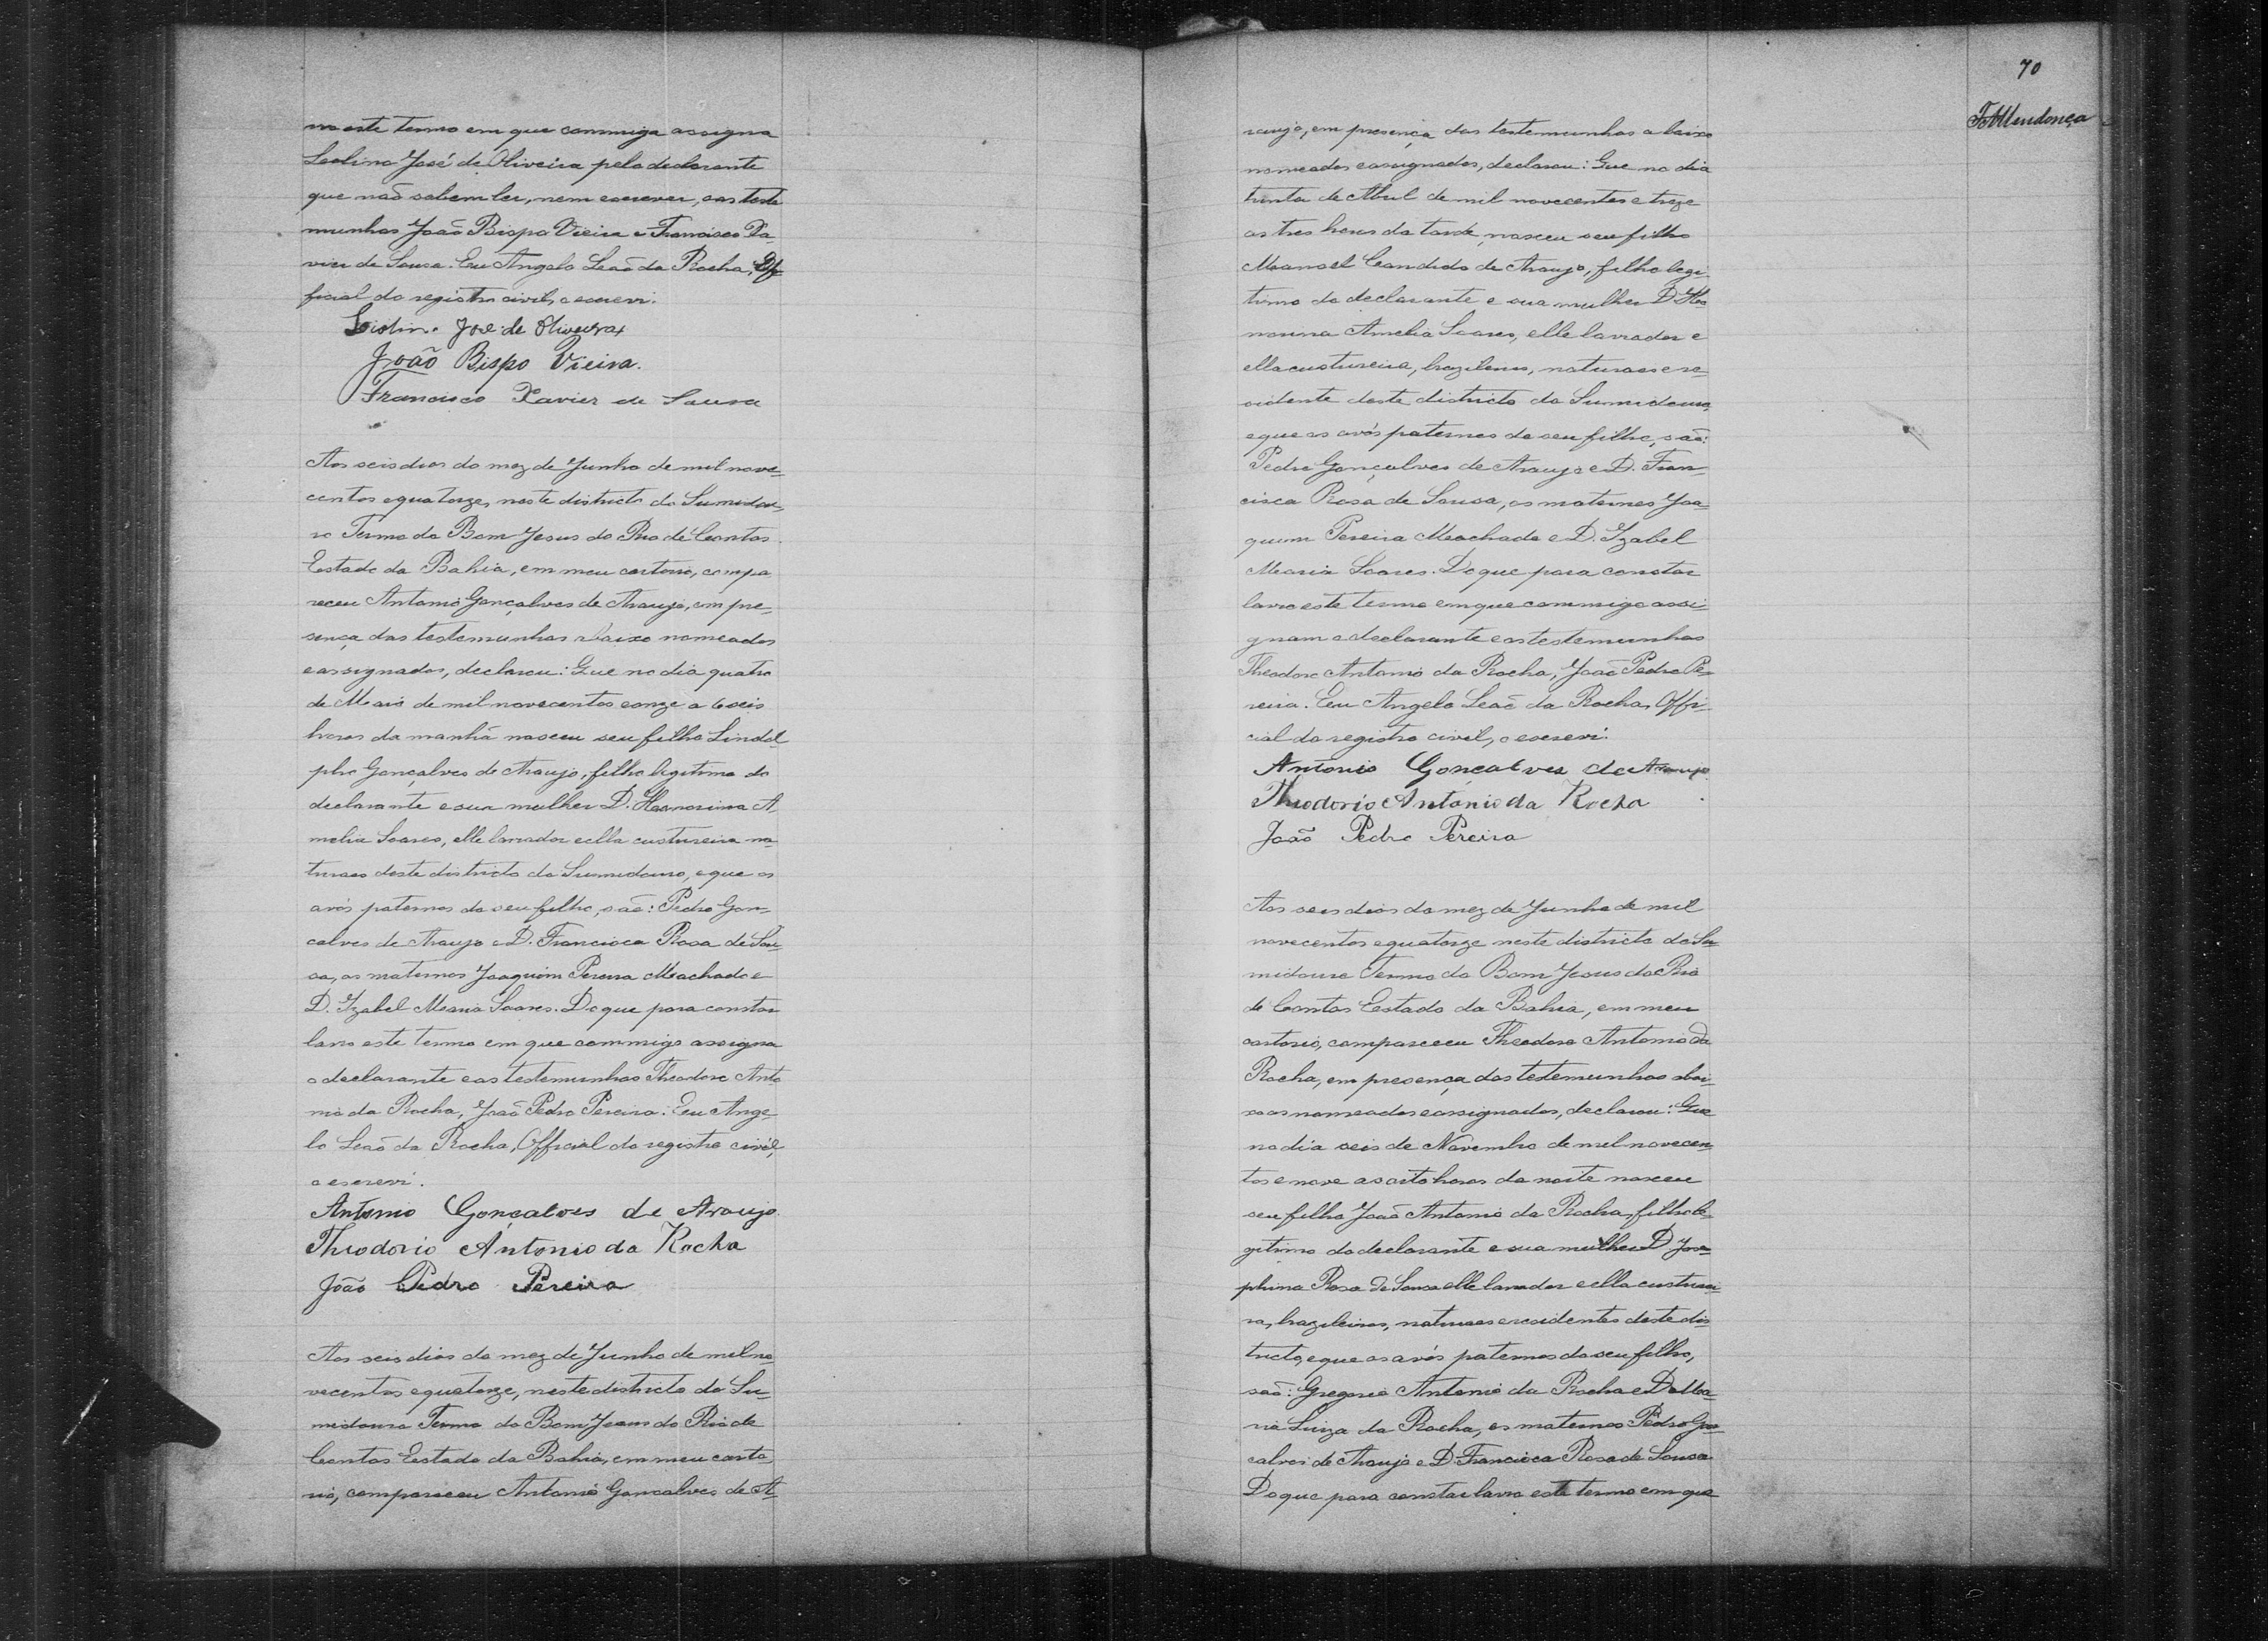 vro este termo em que commigo assigna
Leolino José de Oliveira pelo declarante
que naõ sabem ler, nem escrever, e as teste
munhas Joaõ Bispo Vieira e Francisco Xa-
vier de Sousa. Eu Angelo Leaõ da Rocha, Of-
ficial do registro civil, o escrevi.
José de Oliveira
João Bispo Vieira.
Francisco Xavier de Sousa
Aos seis dias do mez de Junho de mil nove-
centos e quatorze, neste districto do Sumidou-
ro Termo do Bom Jesus do Rio de Contas
Estado da Bahia, em meu cartorio, compa
receu Antonio Gonçalves de Araujo, em pre-
sença das testemunhas abaixo nomeadas
e assignadas, declarou: Que no dia quatro
de Maio de mil novecentos e onze a seis
horas da manhã nasceu seu filho Lindol-
pho Gonçalves de Araujo, filho legitimo do
declarante e sua mulher D. Honorina A-
melia Soares, elle lavrador e ella custureira na-
turaes deste districto do Sumidouro, e que os
avós paternos do seu filho, saõ: Pedro Gon-
calves de Araujo e D. Francisca Rosa de Sou-
sa, os maternos Joaquim Pereira Machado e
D. Izabel Maria Soares. Do que para constar
lavro este termo em que commigo assigna
o declarante e as testemunhas Theodoro Anto
nio da Rocha, Joaõ Pedro Pereira. Eu Ange-
lo Leaõ da Rocha, Official do registro civil,
o escrevi.
Antonio Gonçalves de Araujo
Theodorio Antonio da Rocha
João Pedro Pereira
Aos seis dias do mez de Junho de mil no-
vecentos e quatorze, neste districto do Su-
midouro Termo do Bom Jesus do Rio de
Contas Estado da Bahia, em meu carto-
rio, compareceu Antonio Goncalves de A-
70
FMMendonça
raujo, em presença das testemunhas abaixo
nomeadas e assignadas, declarou: Que no dia
trinta de Abril de mil novecentos e treze
as tres horas da tarde, nasceu seu filho
Manoel Candido de Araujo, filho legi-
timo do declarante e sua mulher D. Ho-
norina Amelia Soares, elle lavrador e
ella custureira, brazileiros, naturaes e re-
sidente deste districto do Sumidouro,
e que os avós paternos do seu filho, saõ:
Pedro Gonçalves de Araujo e D. Fran-
cisca Rosa de Sousa, os maternos Joa-
quim Pereira Machado e D. Izabel
Maria Soares. Do que para constar
lavro este termo em que commigo assi-
gnam o declarante e as testemunhas
Theodoro Antonio da Rocha, Joaõ Pedro Pe-
reira. Eu Angelo Leaõ da Rocha, Offi-
cial do registro civil, o escrevi.
Antonio Gonçalves de Araujo
Theodorio Antonio da Rocha
João Pedro Pereira
Aos seis dias do mez de Junho de mil
novecentos e quatorze neste districto do Su-
midouro Termo do Bom Jesus do Rio
de Contas Estado da Bahia, em meu
cartorio, compareceu Theodoro Antonio da
Rocha, em presença das testemunhas abai-
xo as nomeadas e assignadas, declarou: Que
no dia seis de Novembro de mil novecen-
tos e nove as oito horas da noite nasceu
seu filho Joaõ Antonio da Rocha, filho le-
gitimo do declarante e sua mulher D. Jose-
phina Rosa de Sousa elle lavrador e ella custurei-
ra, brazileiros, naturaes e residentes deste dis-
tricto, e que os avós paternos do seu filho,
saõ: Gregorio Antonio da Rocha e D. Ma-
ria Luiza da Rocha, os maternos Pedro Gon-
calves de Araujo e D. Francisca Rosa de Sousa
Do que para constar lavro este termo em que